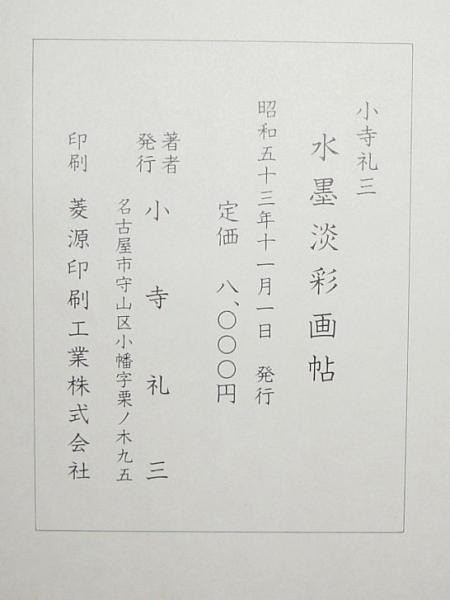 小寺礼三
水墨淡彩画帖
昭和五十三年十一月一日 発行
定価 八、〇〇〇円
著者
発行 小寺礼三
名古屋市守山区小幡字栗ノ木九五
印刷 菱源印刷工業株式会社